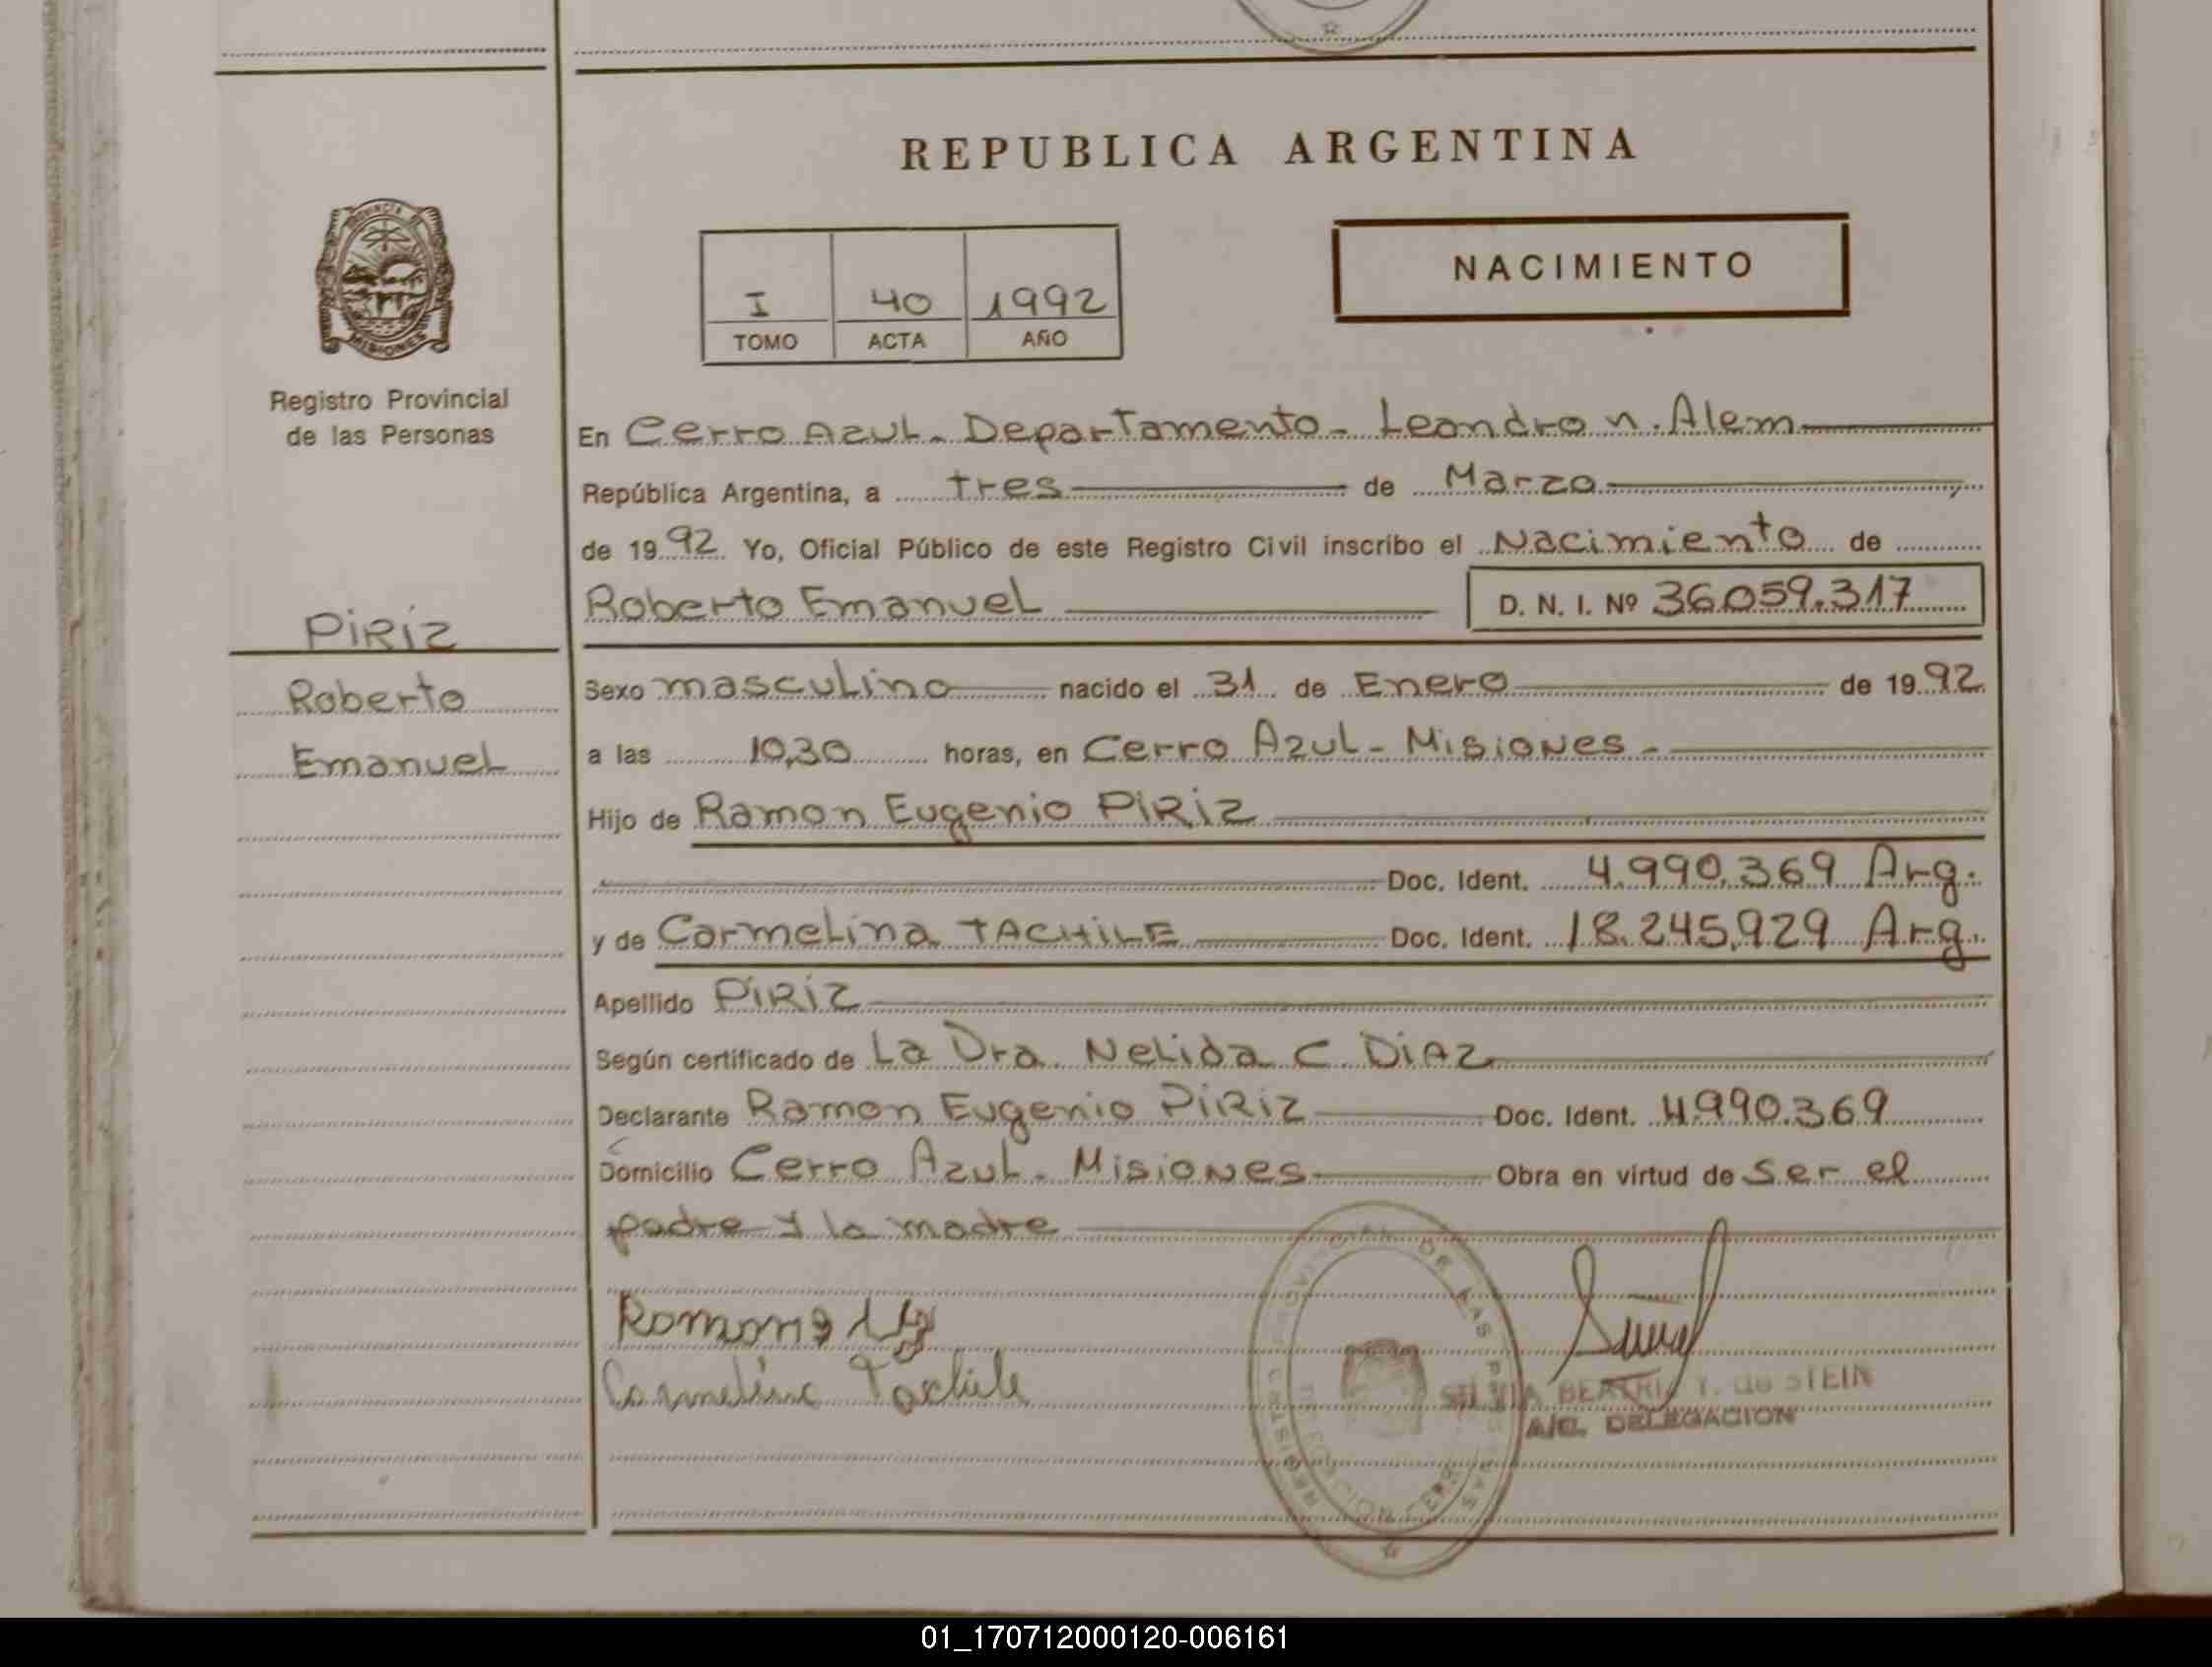 REPUBLICA ARGENTINA
NACIMIENTO
I 40 1992
TOMO ACTA AÑO
PROVINCIA DE
MISIONES
Registro Provincial
de las Personas
En Cerro Azul - Departamento - Leandro N. Alem
República Argentina, a tres de Marzo
de 1992 Yo, Oficial Público de este Registro Civil inscribo el Nacimiento de
Roberto Emanuel D. N. I. Nº 36059.317
PIRIZ
Roberto
Emanuel
Sexo masculino nacido el 31 de Enero de 1992
a las 10,30 horas, en Cerro Azul - Misiones -
Hijo de Ramon Eugenio PIRIZ
Doc. Ident. 4.990.369 Arg.
y de Carmelina TACHILE Doc. Ident. 18.245.929 Arg.
Apellido PIRIZ
Según certificado de La Dra. Nelida C. DIAZ
Declarante Ramon Eugenio PIRIZ Doc. Ident. 4.990.369
Domicilio Cerro Azul - Misiones Obra en virtud de ser el
padre y la madre
Carmelina Tachile
REGISTRO PROVINCIAL DE LAS PERSONAS
SILVIA BEATRIZ Y. de STEIN
A/C. DELEGACION
01_170712000120-006161